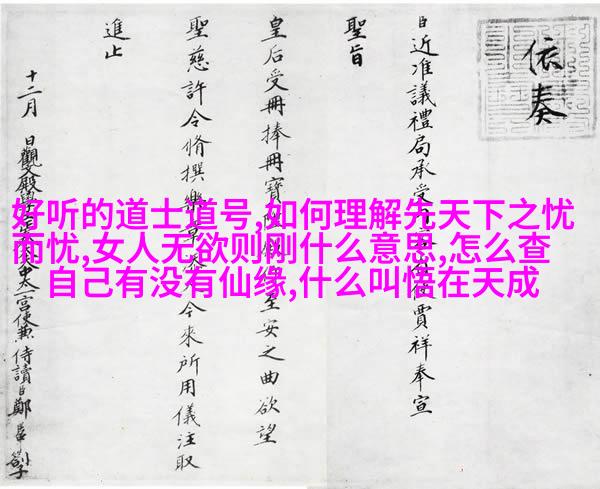 好听的道士道号,如何理解先天下之忧
而忧,女人无欲则刚什么意思,怎么查
自己有没有仙缘,什么叫悟在天成
依奏
臣近准議禮局承受賈祥奉宣
聖旨
皇后受冊捧冊寶安之曲欲望
聖慈許令脩撰樂今來所用儀注取
進止
十二月 日觀文殿學宮使兼侍讀臣鄭